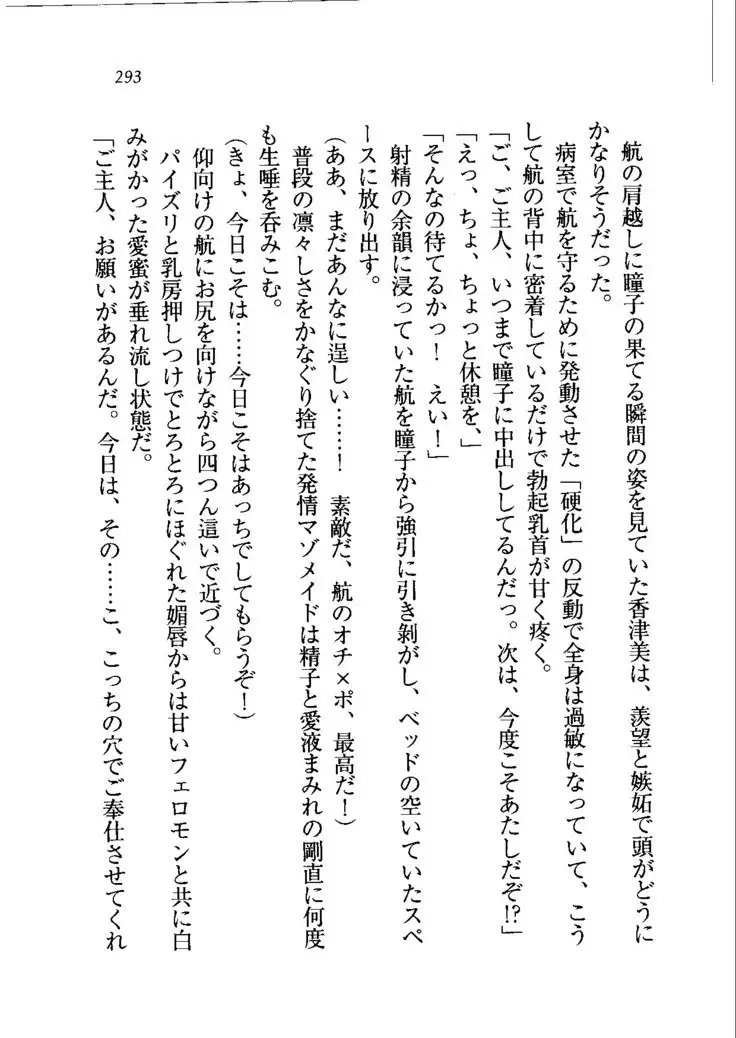 293
航の肩越しに瞳子の果てる瞬間の姿を見ていた香津美は、羨望と嫉妬で頭がどうに
かなりそうだった。
病室で航を守るために発動させた「硬化」の反動で全身は過敏になっていて、こう
して航の背中に密着しているだけで勃起乳首が甘く疼く。
「ご、ご主人、いつまで瞳子に中出ししてるんだっ。次は、今度こそあたしだぞ!?」
「えっ、ちょ、ちょっと休憩を、」
「そんなの待てるかっ！　えい！」
射精の余韻に浸っていた航を瞳子から強引に引き剥がし、ベッドの空いていたスペ
ースに放り出す。
（ああ、まだあんなに逞しい……！　素敵だ、航のオチ×ポ、最高だ！）
普段の凛々しさをかなぐり捨てた発情マゾメイドは精子と愛液まみれの剛直に何度
も生唾を呑みこむ。
（きょ、今日こそは……今日こそはあっちでしてもらうぞ！）
仰向けの航にお尻を向けながら四つん這いで近づく。
パイズリと乳房押しつけでとろとろにほぐれた媚唇からは甘いフェロモンと共に白
みがかった愛蜜が垂れ流し状態だ。
「ご主人、お願いがあるんだ。今日は、その……こ、こっちの穴でご奉仕させてくれ